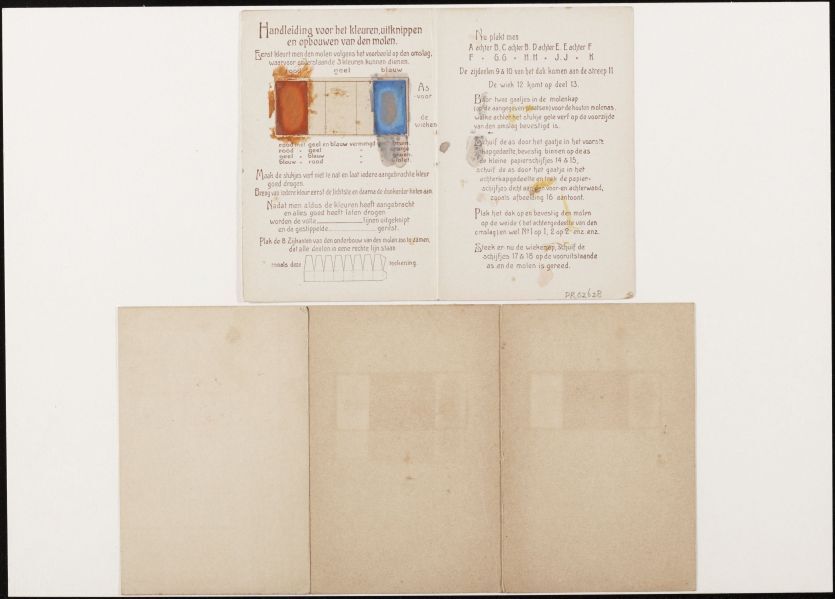 Handleiding voor het kleuren, uitknippen
en opbouwen van den molen.
Eerst kleurt men den molen volgens het voorbeeld op den omslag,
waarvoor onderstaande 3 kleuren kunnen dienen.
rood geel blauw
As
-voor
de
wieken
rood met geel en blauw vermengd
rood " geel
geel " blauw
blauw " rood
Maak de stukjes verf niet te nat en laat iedere aangebrachte kleur
goed drogen.
Breng van iedere kleur eerst de lichtste en daarna de donkerder tinten aan.
Nadat men aldus de kleuren heeft aangebracht
en alles goed heeft laten drogen
worden de volle lijnen uitgeknipt
en de gestippelde gerist.
Plak de 8 Zijkanten van den onderbouw van den molen zoo te zamen,
dat alle deelen in eene rechte lijn staan
zooals deze teekening.
Nu plakt men
A achter B, C achter B. D achter E. E achter F
F " G. G " H. H " J. J " K
De zijdeelen 9 & 10 van het dak komen aan de streep 11
De wiek 12 komt op deel 13.
Door twee gaatjes in de molenkap
(op de aangegeven plaatsen) voor de houten molenas,
welke achter het stukje gele verf op de voorzijde
van den omslag bevestigd is.
Schuif de as door het gaatje in het voorste
kapgedeelte, bevestig binnen op de as
de kleine papierschijfjes 14 & 15,
schuif de as door het gaatje in het
achterkapgedeelte en plak de papier-
schijfjes dicht aan den voor- en achterwand,
zooals afbeelding 16 aantoont.
Plak het dak op en bevestig den molen
op de weide (het achtergedeelte van den
omslag) en wel Nº 1 op 1, 2 op 2 enz. enz.
Steek er nu de wieken op, schuif de
schijfjes 17 & 18 op de vooruitstaande
as en de molen is gereed.
PR.02628